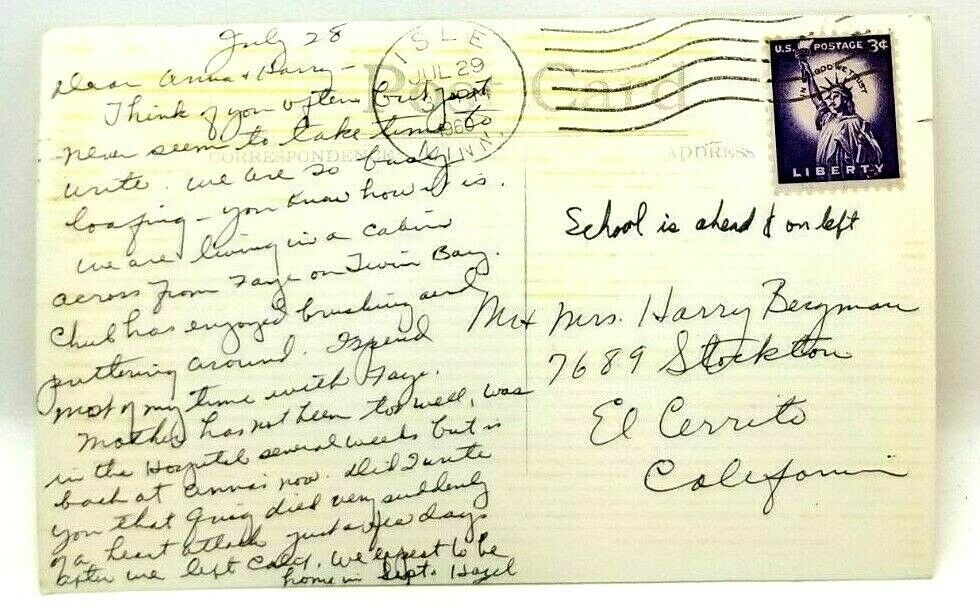 July 28
Dear Anna & Harry -
Think of you often but just
never seem to take time to
write. We are so busy
loafing - you know how it is.
We are living in a cabin
across from Faye on Twin Bay.
Chub has enjoyed brushing and
puttering around. I spend
most of my time with Faye.
Mother has not been too well, was
in the Hospital several weeks but is
back at Anna's now. Did I write
you that died very suddenly
of a heart attack just a few days
after we left Calif. We expect to be
home in Sept. Hazel
Post Card
CORRESPONDENCE
ADDRESS
ISLE
JUL 29
PM
1960
MINN.
U.S. POSTAGE 3¢
IN GOD WE TRUST
LIBERTY
School is ahead & on left
Mr + Mrs. Harry Bergman
7689 Stockton
El Cerrito
California